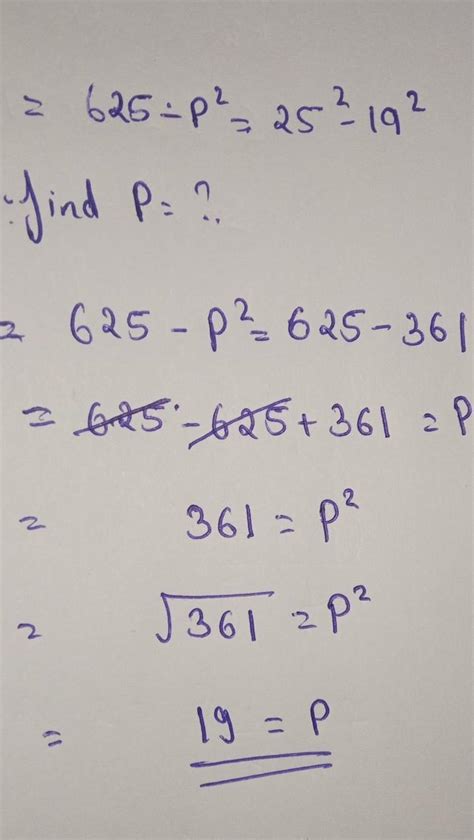 = 625 - P² = 25² - 19²
find P = ?
= 625 - P² = 625 - 361
= 625 - 625 + 361 = P
= 361 = P²
= √361 = P²
= 19 = P